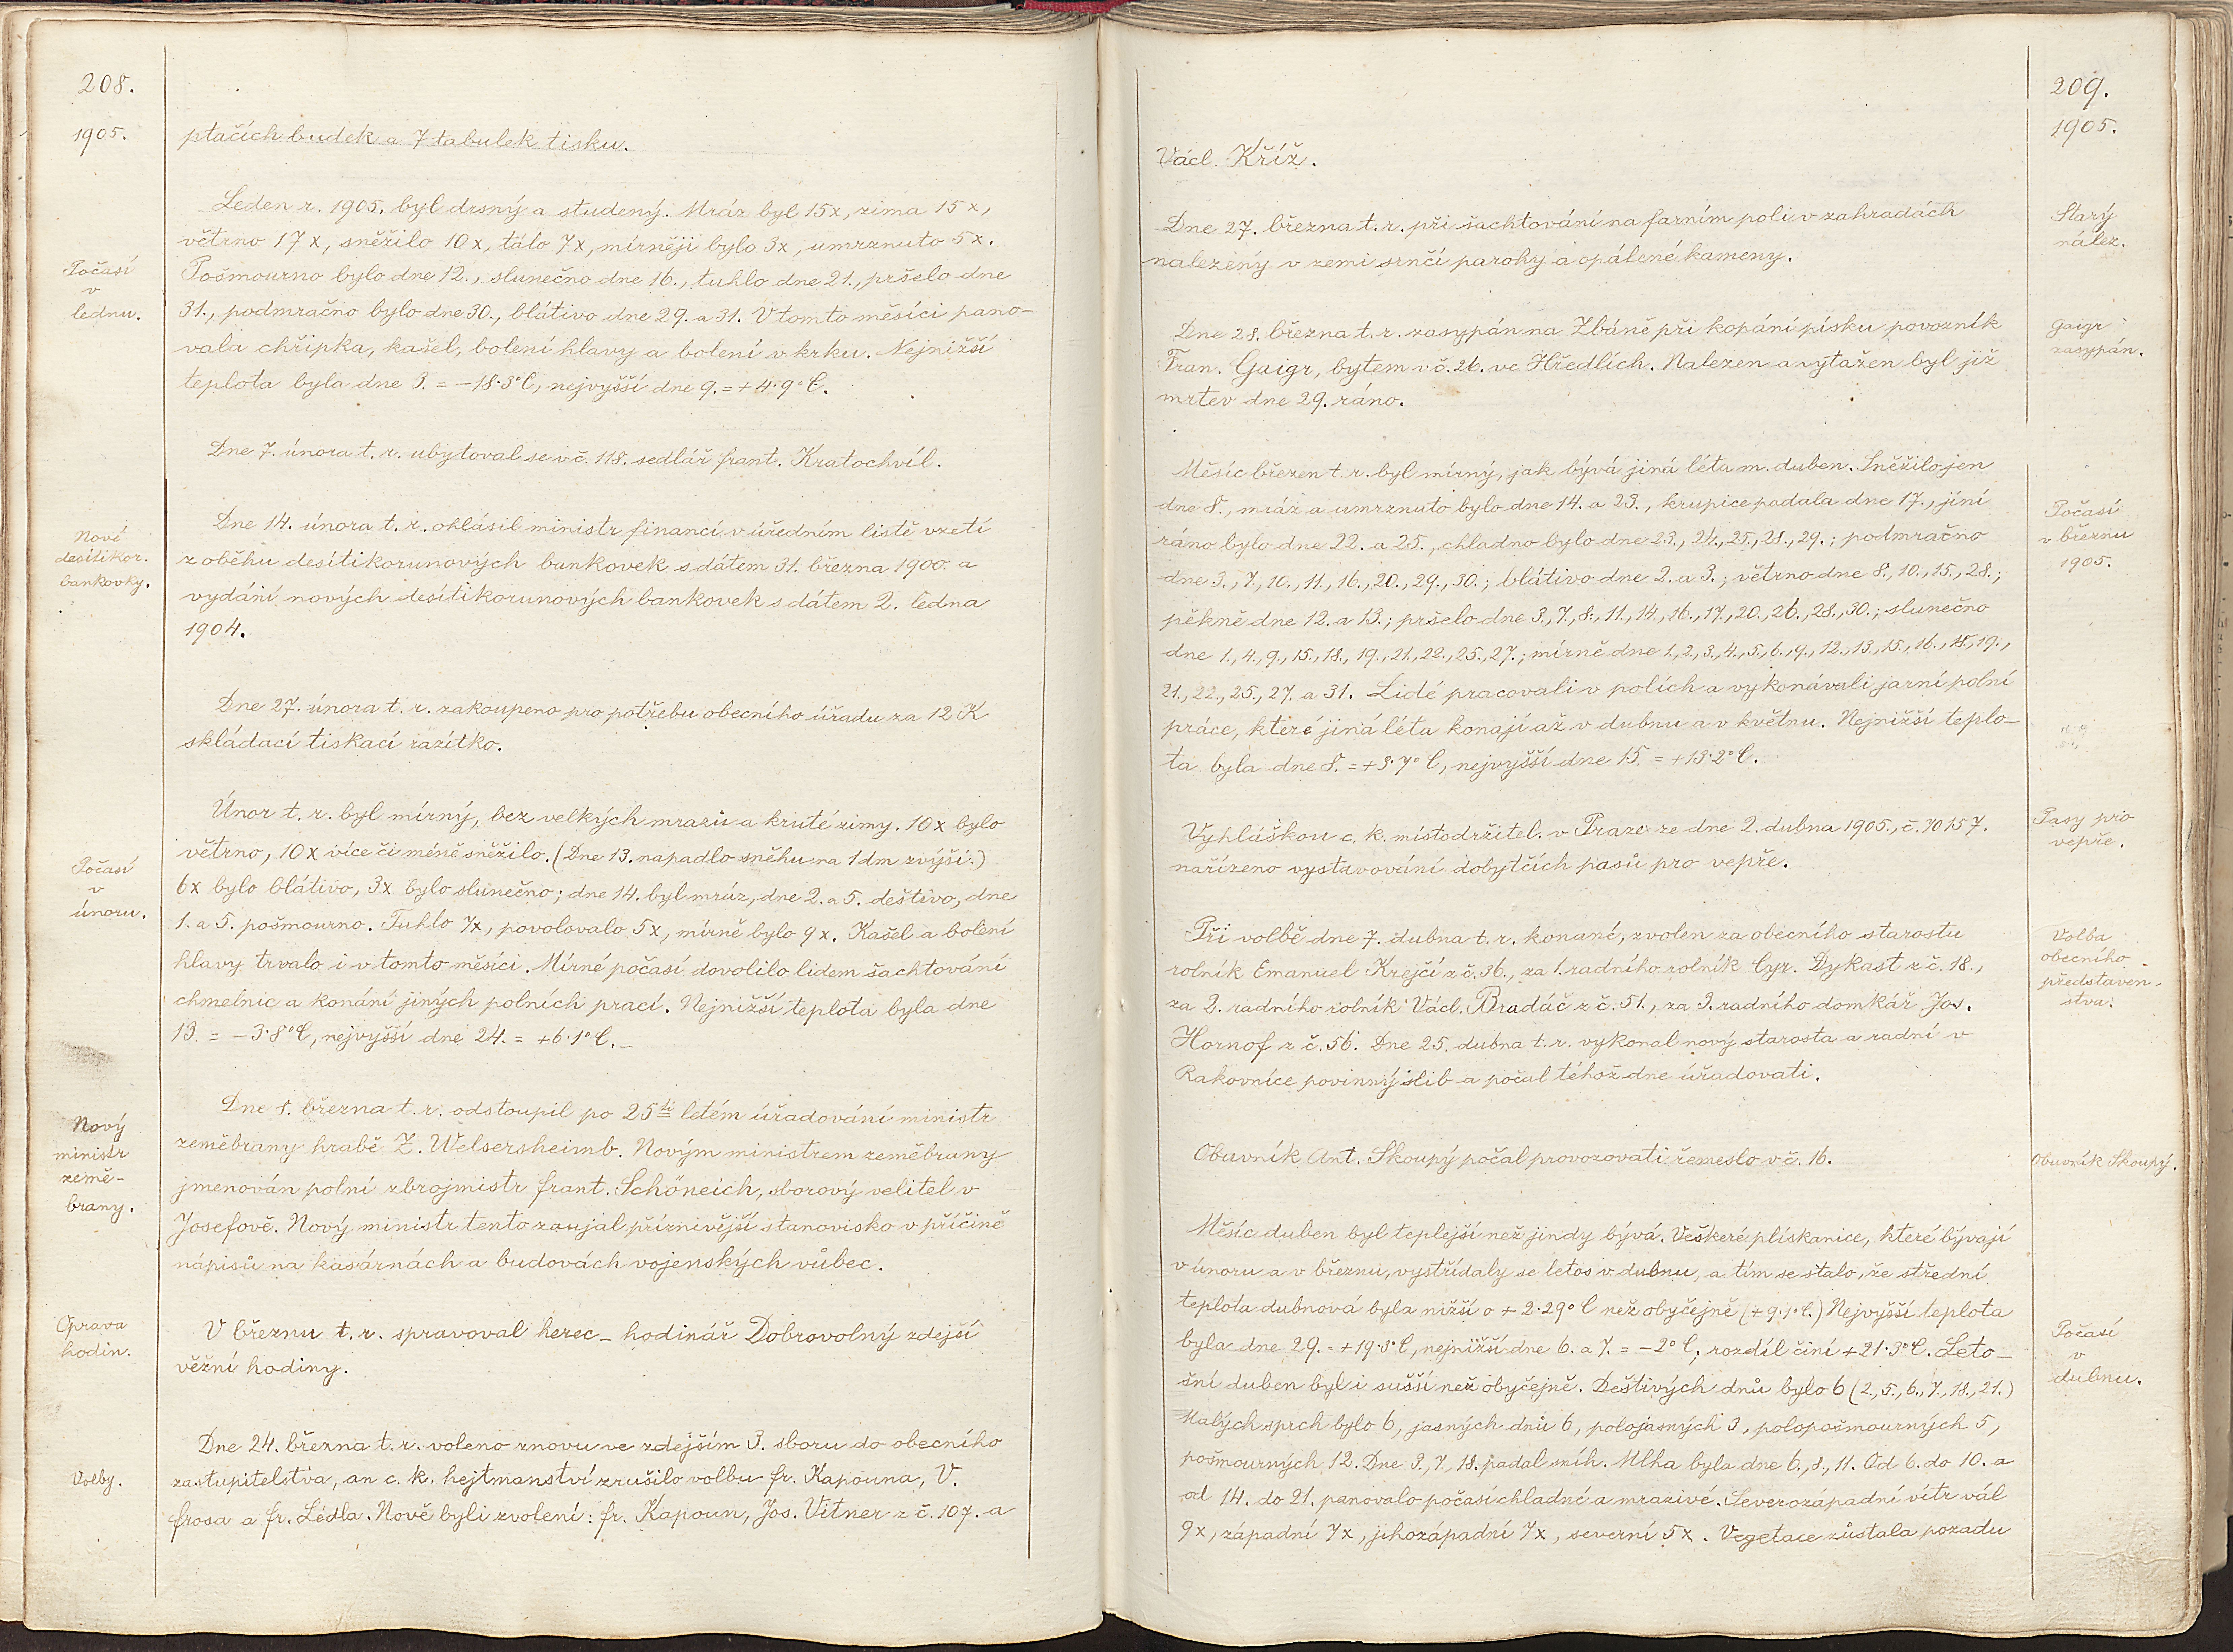 208.
1905.
ptačích budek a 7 tabulek tisku.
Leden r. 1905. byl drsný a studený. Mráz byl 15x, zima 15x,
větrno 17x, sněžilo 10x, tálo 7x, mírněji bylo 3x, umrznuto 5x.
Počasí
v
lednu.
Pošmourno bylo dne 12., slunečno dne 16., tuhlo dne 21., pršelo dne
31., podmračno bylo dne 30., blátivo dne 29. a 31. V tomto měsíci pano-
vala chřipka, kašel, bolení hlavy a bolení v krku. Nejnižší
teplota byla dne 3. = -18·3°C, nejvyšší dne 9. = +4·9°C.
Dne 7. února t. r. ubytoval se v č. 118. sedlář frant. Kratochvíl.
Nové
desítikor.
bankovky.
Dne 14. února t. r. ohlásil ministr financí v úředním listě vzetí
z oběhu desítikorunových bankovek s dátem 31. března 1900. a
vydání nových desítikorunových bankovek s dátem 2. ledna
1904.
Dne 27. února t. r. zakoupeno pro potřebu obecního úřadu za 12 K
skládací tiskací razítko.
Únor t. r. byl mírný, bez velkých mrazů a kruté zimy. 10x bylo
větrno, 10x více či méně sněžilo. (Dne 13. napadlo sněhu na 1 dm zvýší.)
Počasí
v
únoru.
6x bylo blátivo, 3x bylo slunečno; dne 14. byl mráz, dne 2. a 5. deštivo, dne
1. a 5. pošmourno. Tuhlo 7x, povolovalo 5x, mírně bylo 9x. Kašel a bolení
hlavy trvalo i v tomto měsíci. Mírné počasí dovolilo lidem šachtování
chmelnic a konání jiných polních prací. Nejnižší teplota byla dne
13. = -3·8°C, nejvyšší dne 24. = +6·1°C. –
Nový
ministr
země-
brany.
Dne 8. března t. r. odstoupil po 25ti letém úřadování ministr
zeměbrany hrabě Z. Welsersheimb. Novým ministrem zeměbrany
jmenován polní zbrojmistr frant. Schöneich, sborový velitel v
Josefově. Nový ministr tento zaujal příznivější stanovisko v příčině
nápisů na kasárnách a budovách vojenských vůbec.
Oprava
hodin.
V březnu t. r. spravoval herec – hodinář Dobrovolný zdejší
věžní hodiny.
Dne 24. března t. r. voleno znovu ve zdejším 3. sboru do obecního
Volby.
zastupitelstva, an c. k. hejtmanství zrušilo volbu fr. Kapouna, V.
frosa a fr. Lédla. Nově byli zvoleni: fr. Kapoun, Jos. Vitner z č. 107. a
209.
1905.
Václ. Kříž.
Starý
nález.
Dne 27. března t. r. při šachtování na farním poli v zahradách
nalezeny v zemi srnčí parohy a opálené kameny.
Gaigr
zasypán.
Dne 28. března t. r. zasypán na Zbáně při kopání písku povozník
Fran. Gaigr, bytem v č. 26. ve Hředlích. Nalezen a vytažen byl již
mrtev dne 29. ráno.
Počasí
v březnu
1905.
Měsíc březen t. r. byl mírný, jak bývá jiná léta m. duben. Sněžilo jen
dne 8., mráz a umrznuto bylo dne 14. a 23., krupice padala dne 17., jíní
ráno bylo dne 22. a 25., chladno bylo dne 23., 24., 25., 28., 29.; podmračno
dne 3., 7., 10., 11., 16., 20., 29., 30.; blátivo dne 2. a 3.; větrno dne 8., 10., 15., 28.;
pěkně dne 12. a 13.; pršelo dne 3., 7., 8., 11., 14., 16., 17., 20., 26., 28., 30.; slunečno
dne 1., 4., 9., 15., 18., 19., 21., 22., 25., 27.; mírně dne 1., 2., 3., 4., 5., 6., 9., 12., 13., 15., 16., 18., 19.,
21., 22., 25., 27. a 31. Lidé pracovali v polích a vykonávali jarní polní
práce, které jiná léta konají až v dubnu a v květnu. Nejnižší teplo-
ta byla dne 8. = +3·7°C, nejvyšší dne 15. = +13·2°C.
Pasy pro
vepře.
Vyhláškou c. k. místodržitel. v Praze ze dne 2. dubna 1905., č. 70157.
nařízeno vystavování dobytčích pasů pro vepře.
Volba
obecního
představen-
stva.
Při volbě dne 7. dubna t. r. konané, zvolen za obecního starostu
rolník Emanuel Krejčí z č. 36., za 1. radního rolník Cyr. Dykast z č. 18.,
za 2. radního rolník Václ. Bradáč z č. 51., za 3. radního domkář Jos.
Hornof z č. 56. Dne 25. dubna t. r. vykonal nový starosta a radní v
Rakovníce povinný slib a počal téhož dne úřadovati.
Obuvník Ant. Skoupý počal provozovati řemeslo v č. 16.
Obuvník Skoupý.
Měsíc duben byl teplejší než jindy bývá. Veškeré plískanice, které bývají
v únoru a v březnu, vystřídaly se letos v dubnu, a tím se stalo, že střední
teplota dubnová byla nižší o + 2·29°C než obyčejně (+9·1°C.) Nejvyšší teplota
Počasí
v
dubnu.
byla dne 29. = +19·3°C, nejnižší dne 6. a 7. = -2°C, rozdíl činí +21·3°C. Leto-
šní duben byl i sušší než obyčejně. Deštivých dnů bylo 6 (2., 5., 6., 7., 18., 21.)
Malých sprch bylo 6, jasných dnů 6, polojasných 3, polopošmourných 5,
pošmourných 12. Dne 3., 7., 18. padal sníh. Mlha byla dne 6., 8., 11. Od 6. do 10. a
od 14. do 21. panovalo počasí chladné a mrazivé. Severozápadní vítr vál
9x, západní 7x, jihozápadní 7x, severní 5x. Vegetace zůstala pozadu